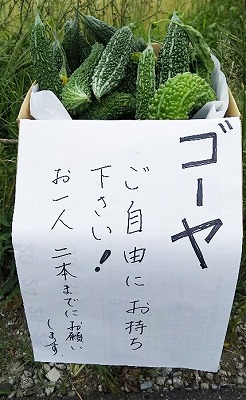 ゴーヤ
ご自由にお持ち
下さい!
お一人 二本までにお願い
します。